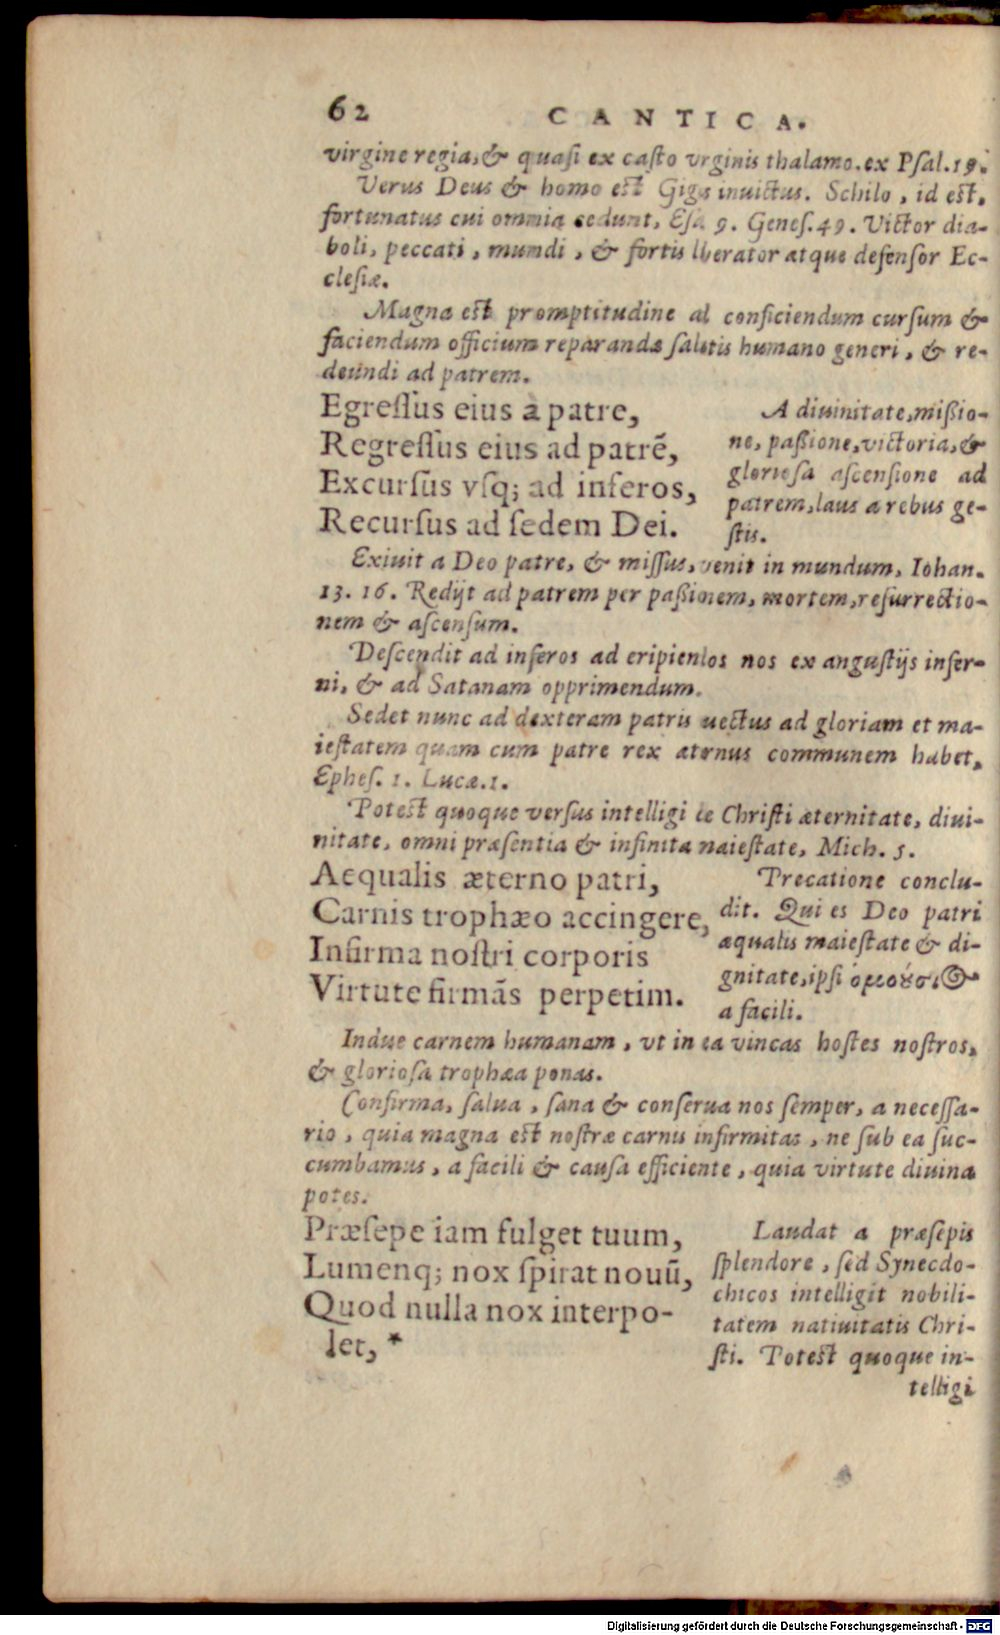 62 CANTICA.
virgine regia, & quasi ex casto vrginis thalamo. ex Psal. 19.
Verus Deus & homo est Gigas inuictus. Schilo, id est,
fortunatus cui omnia cedunt, Esa 9. Genes. 49. Victor dia-
boli, peccati, mundi, & fortis lberator atque defensor Ec-
clesiæ.
Magna est promptitudine ad conficiendum cursum &
faciendum officium reparandæ salutis humano generi, & re-
deundi ad patrem.
Egreſſus eius à patre,
Regreſſus eius ad patrē,
Excurſus vſq; ad inferos,
Recurſus ad ſedem Dei.
A diuinitate, miſſio-
ne, paſſione, victoria, &
glorioſa aſcenſione ad
patrem, laus a rebus ge-
ſtis.
Exiuit a Deo patre, & miſſus, venit in mundum, Iohan.
13. 16. Redijt ad patrem per paſſionem, mortem, reſurrectio-
nem & aſcenſum.
Deſcendit ad inferos ad eripiendos nos ex anguſtijs infer-
ni, & ad Satanam opprimendum.
Sedet nunc ad dexteram patris uectus ad gloriam et ma-
ieſtatem quam cum patre rex æternus communem habet,
Epheſ. 1. Lucæ. 1.
Poteſt quoque verſus intelligi de Chriſti æternitate, diui-
nitate, omni præſentia & infinita maieſtate, Mich. 5.
Aequalis æterno patri,
Carnis trophæo accingere,
Infirma noſtri corporis
Virtute firmās perpetim.
Precatione conclu-
dit. Qui es Deo patri
æqualis maieſtate & di-
gnitate, ipſi ὁμοούσιος
a facili.
Indue carnem humanam, vt in ea vincas hoſtes noſtros,
& glorioſa trophæa ponas.
Confirma, ſalua, ſana & conſerua nos ſemper, a neceſſa-
rio, quia magna eſt noſtræ carnis infirmitas, ne ſub ea ſuc-
cumbamus, a facili & cauſa efficiente, quia virtute diuina
potes.
Præſepe iam fulget tuum,
Lumenq; nox ſpirat nouū,
Quod nulla nox interpo-
let, *
Laudat a præſepis
ſplendore, ſed Synecdo-
chicos intelligit nobili-
tatem natiuitatis Chri-
ſti. Poteſt quoque in-
telligi
Digitalisierung gefördert durch die Deutsche Forschungsgemeinschaft - DFG